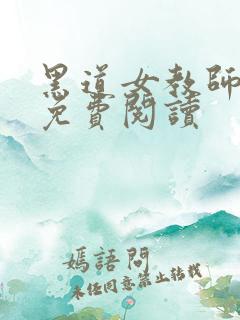 黑道女教師
免費閱讀
嫣語問
未經同意禁止轉載